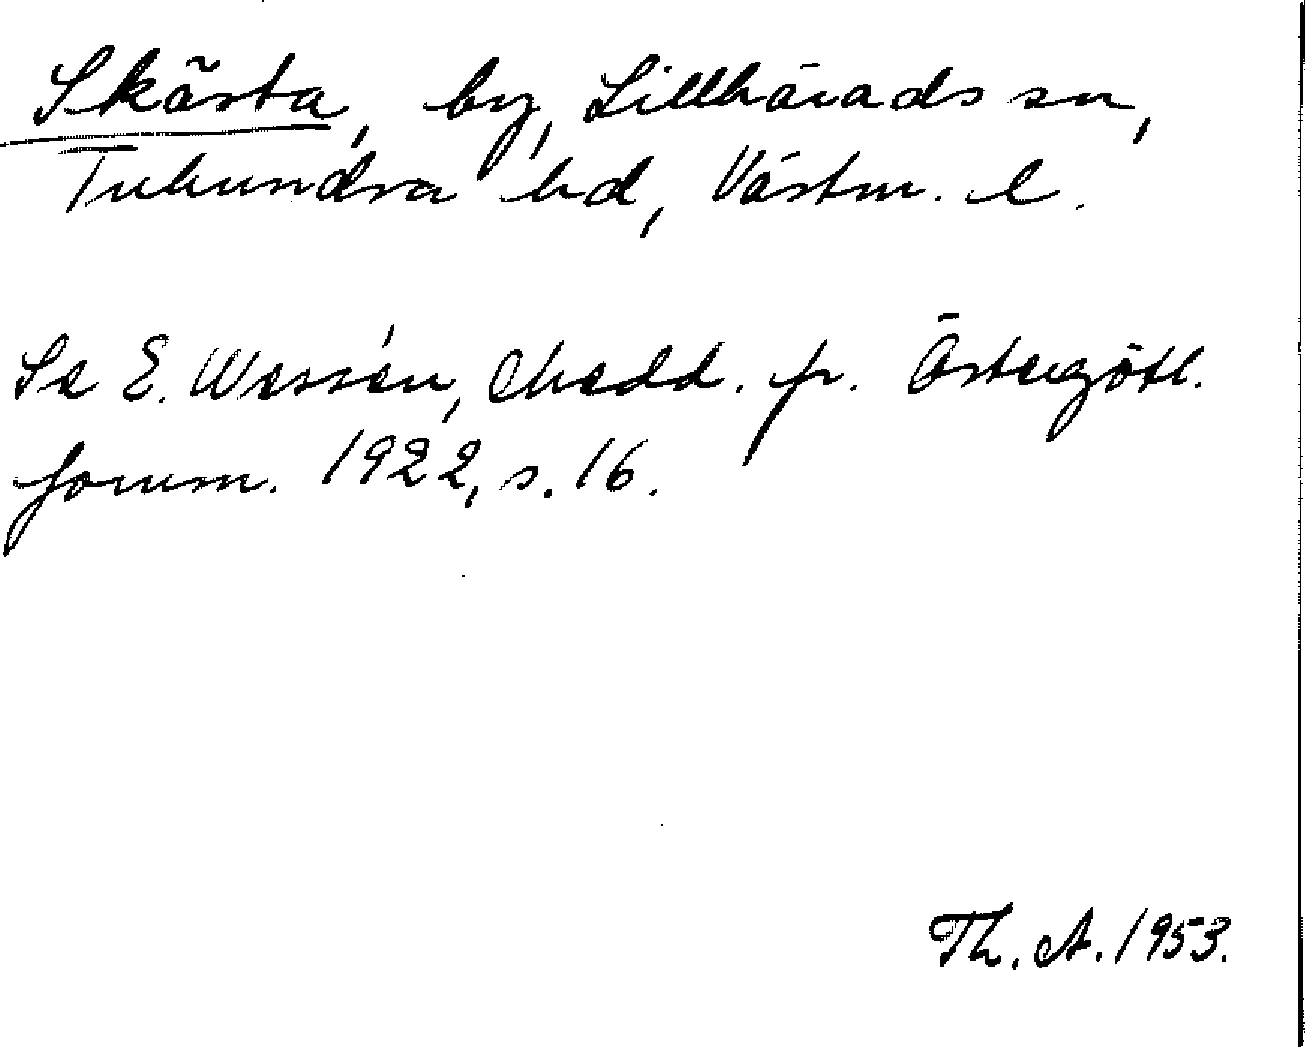 Skärsta, by, Lillhärads sn,
Tuhundra hd, Västm. l.
Se E. Wessén, Medd. fr. Östergötl.
fornm. 1922, s. 16.
Th. A. 1953.